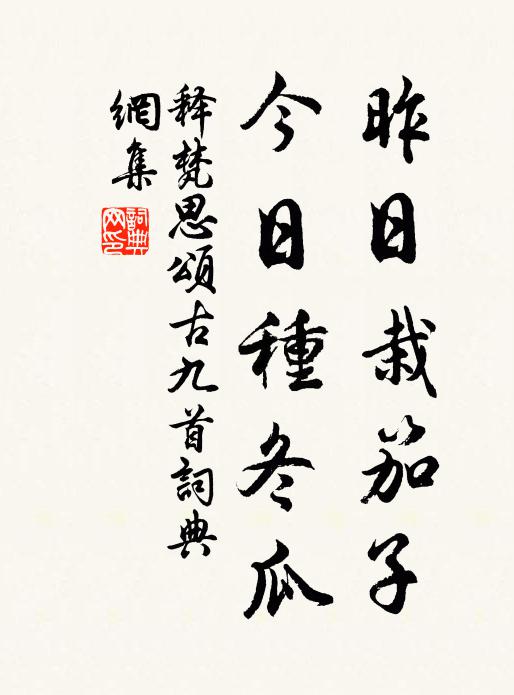 昨日栽笳子
今日種冬瓜
释梵思頌古九首詞典
網集
詞典网印